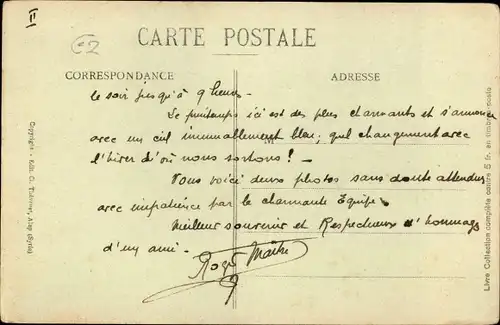 II
CARTE POSTALE
CORRESPONDANCE
ADRESSE
le soir jusqu'à 9 heures -
Le printemps ici est des plus charmants et s'annonce
avec un ciel immuablement bleu, quel changement avec
l'hiver d'où nous sortons ! -
Vous voici deux photos sans doute attendues
avec impatience par la charmante Equipe.
Meilleur souvenir et Respectueux d'hommage
d'un ami -
Roger Maître
Copyright - Edit. Alep (Syrie)
Livre Collection complète contre 5 fr. en timbres-poste